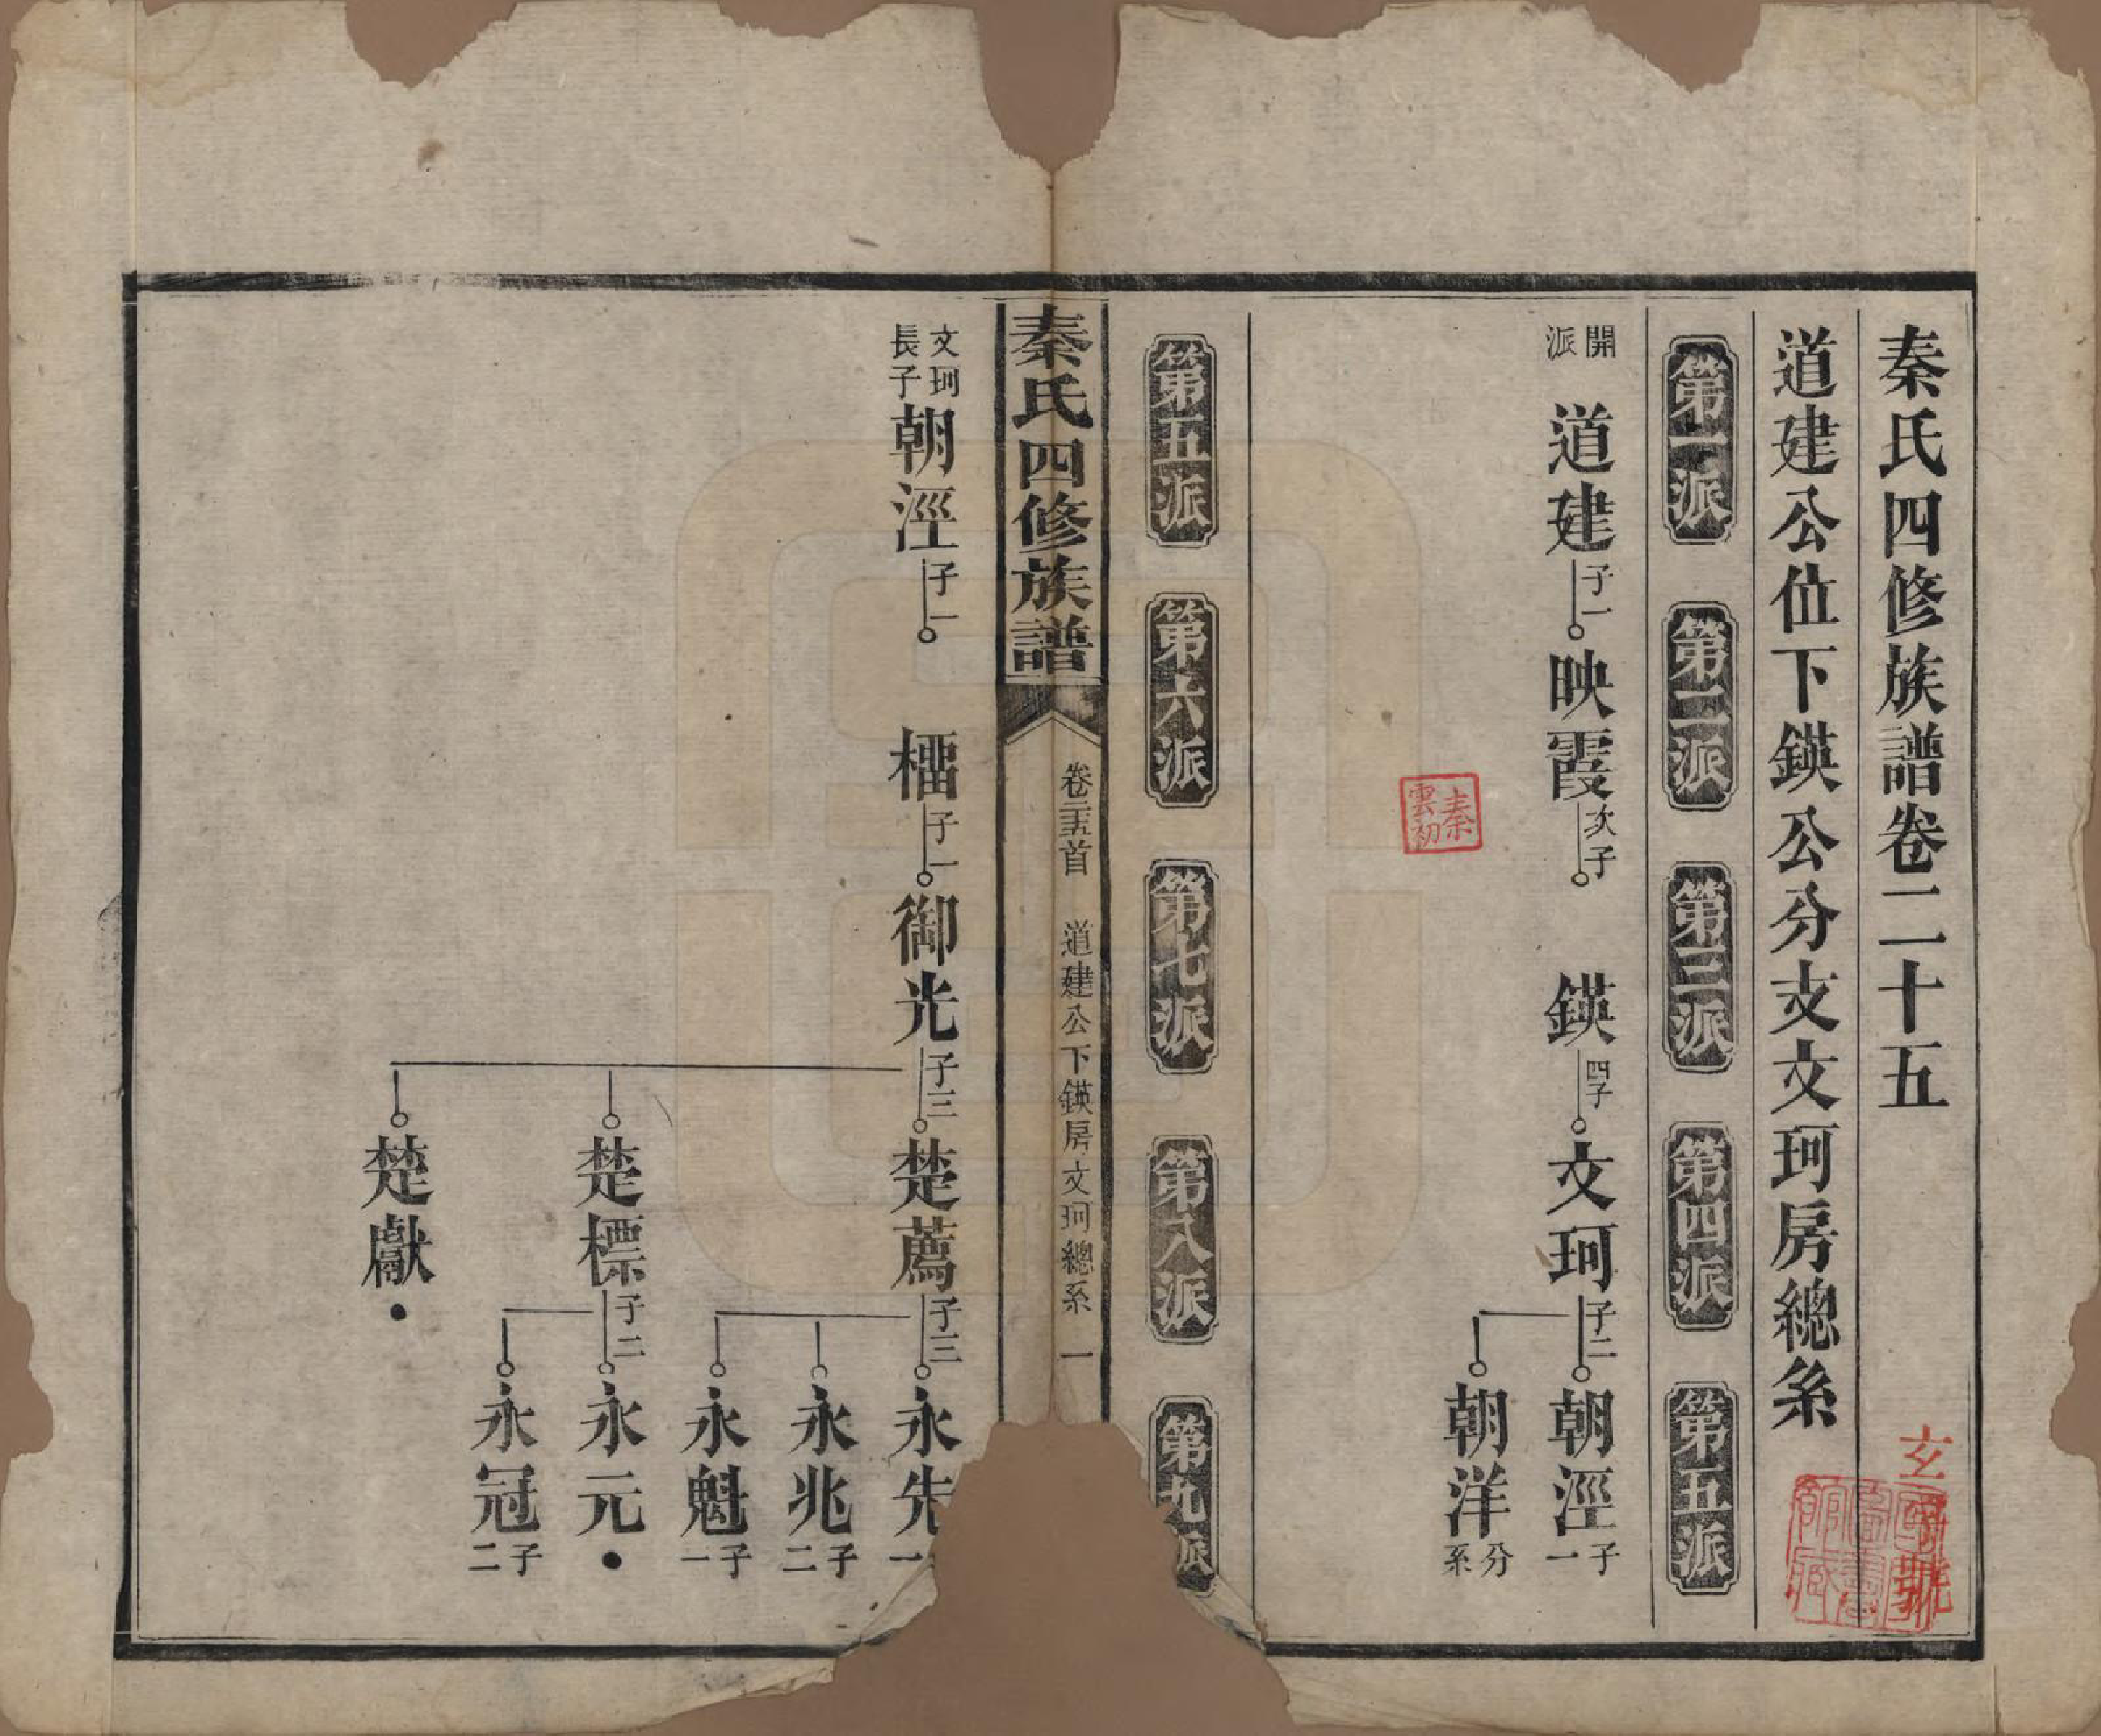 秦氏四修族譜卷二十五
道建公位下鍈公分支文珂房總系
第一派
第二派
第三派
第四派
第五派
開派
道建 子一
映霞 次子
鍈 四子
文珂 子二
朝涇 子一
朝洋 分系
秦雲初
第五派
第六派
第七派
第八派
第九派
秦氏四修族譜
卷二十五首 道建公下鍈房文珂總系 一
文珂長子
朝涇 子一
橊 子一
御光 子三
楚薦 子三
永先 一
永兆 子二
永魁 子一
楚標 子二
永元 •
永冠 子二
楚獻 •
玄
號